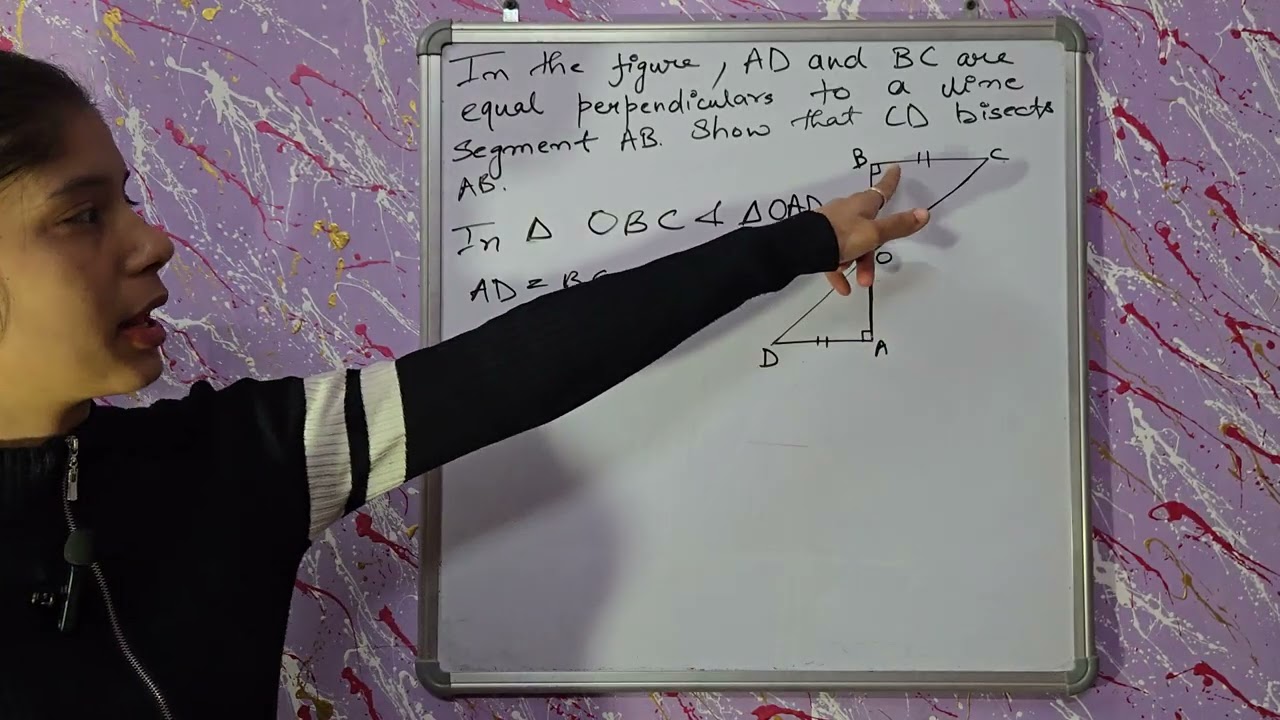 In the figure, AD and BC are
equal perpendiculars to a line
segment AB. Show that CD bisects
AB.
B C
In Δ OBC & ΔOAD
O
AD = BC
D A